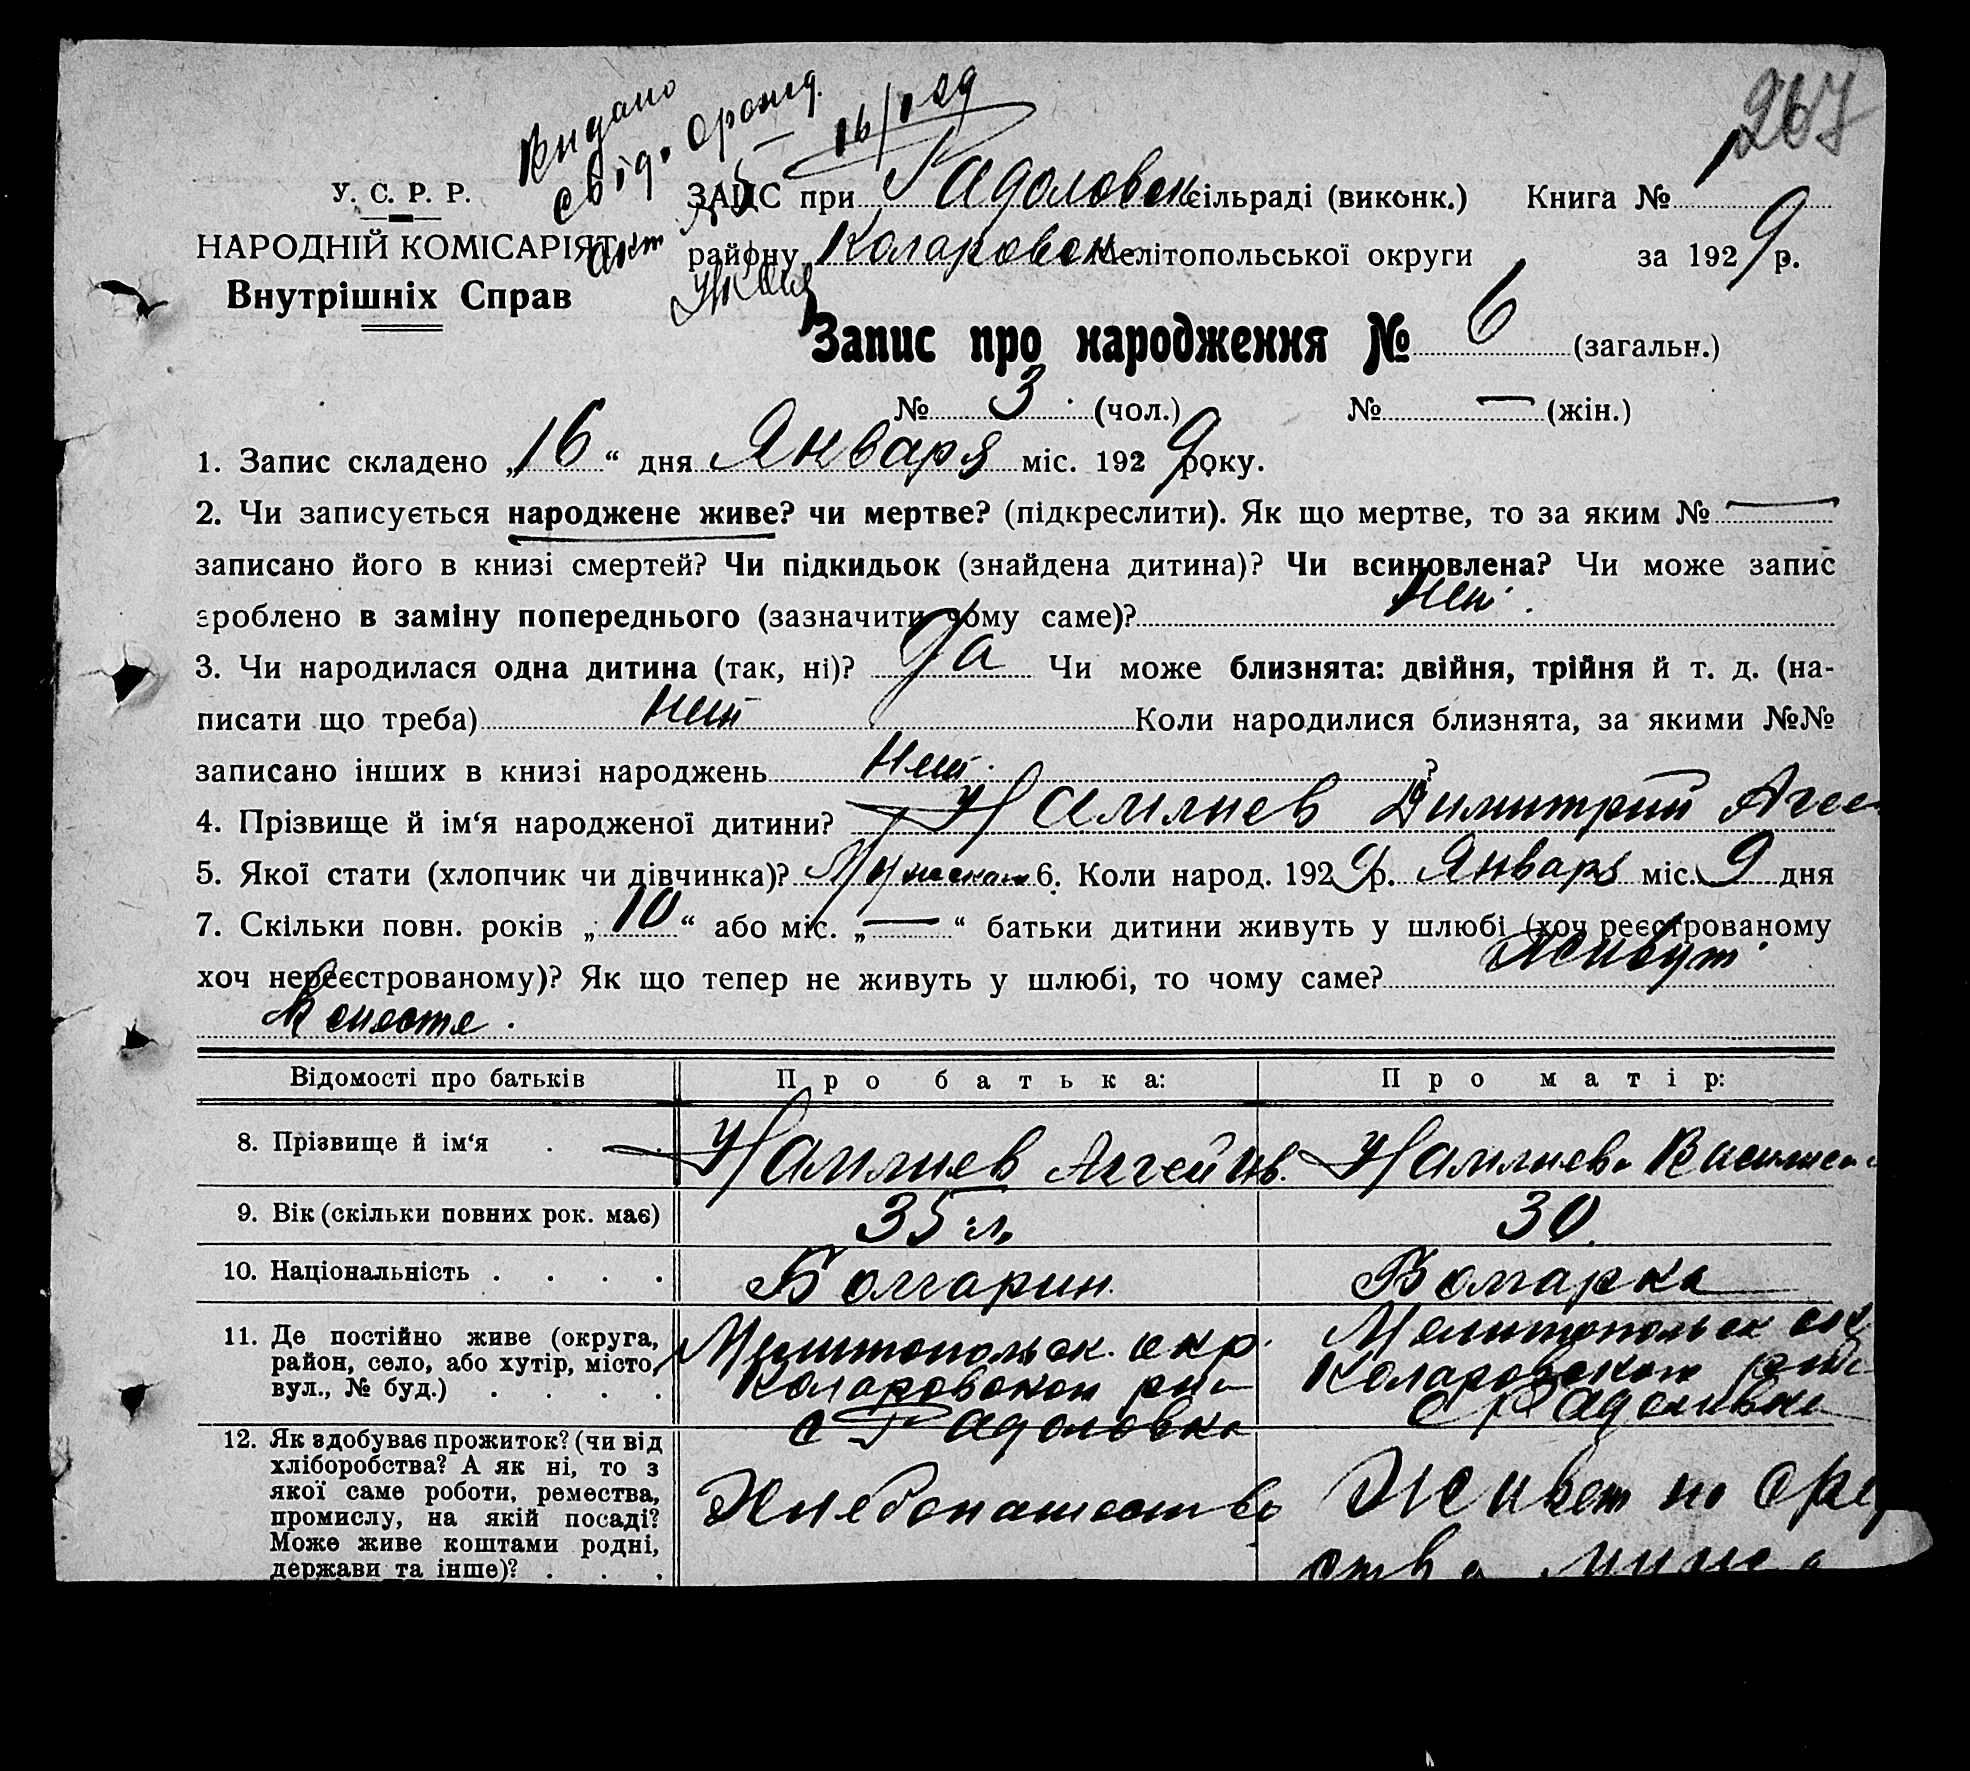 267
Видано
свід. о рожд.
16/I 29
акт № 5
У. С. Р. Р.
НАРОДНІЙ КОМІСАРІЯТ
Внутрішніх Справ
ЗАЦС при Радоловск сільраді (виконк.) Книга № 1
району Коларовск Мелітопольської округи за 1929 р.
Запис про народження № 6 (загальн.)
№ 3 (чол.) № — (жін.)
1. Запис складено „16“ дня Января міс. 1929 року.
2. Чи записується народжене живе? чи мертве? (підкреслити). Як що мертве, то за яким № —
записано його в книзі смертей? Чи підкидьок (знайдена дитина)? Чи всиновлена? Чи може запис
зроблено в заміну попереднього (зазначити чому саме)? Нет.
3. Чи народилася одна дитина (так, ні)? Да Чи може близнята: двійня, трійня й т. д. (на-
писати що треба) Нет Коли народилися близнята, за якими №№
записано інших в книзі народжень Нет. ?
4. Прізвище й ім‘я народженої дитини? Димитрий Агее
5. Якої стати (хлопчик чи дівчинка)? Мужской 6. Коли народ. 1929 р. Январь міс. 9 дня
7. Скільки повн. років „10“ або міс. „—“ батьки дитини живуть у шлюбі (хоч реєстрованому
хоч нереєстрованому)? Як що тепер не живуть у шлюбі, то чому саме? Живут
Вместе.
Відомості про батьків Про батька: Про матір:
8. Прізвище й ім‘я . . Аггей Ив. Василиса
9. Вік (скільки повних рок. має) 35 л. 30.
10. Національність . . . . Болгарин. Болгарка
11. Де постійно живе (округа,
район, село, або хутір, місто,
вул., № буд.) . . . .
Мелитопольск. окр.
Коларовском рай
с Радоловка
Мелитопольск ок
Коларовском рай
с Радоловка
12. Як здобуває прожиток? (чи від
хліборобства? А як ні, то з
якої саме роботи, ремества,
промислу, на якій посаді?
Може живе коштами родні,
держави та інше)? . . .
Хлебопашество
Живет на сред
ства мужа